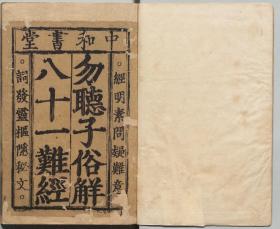 中和書堂
經明素問疑難意
勿聽子俗解
八十一難經
詞發靈樞隱秘文